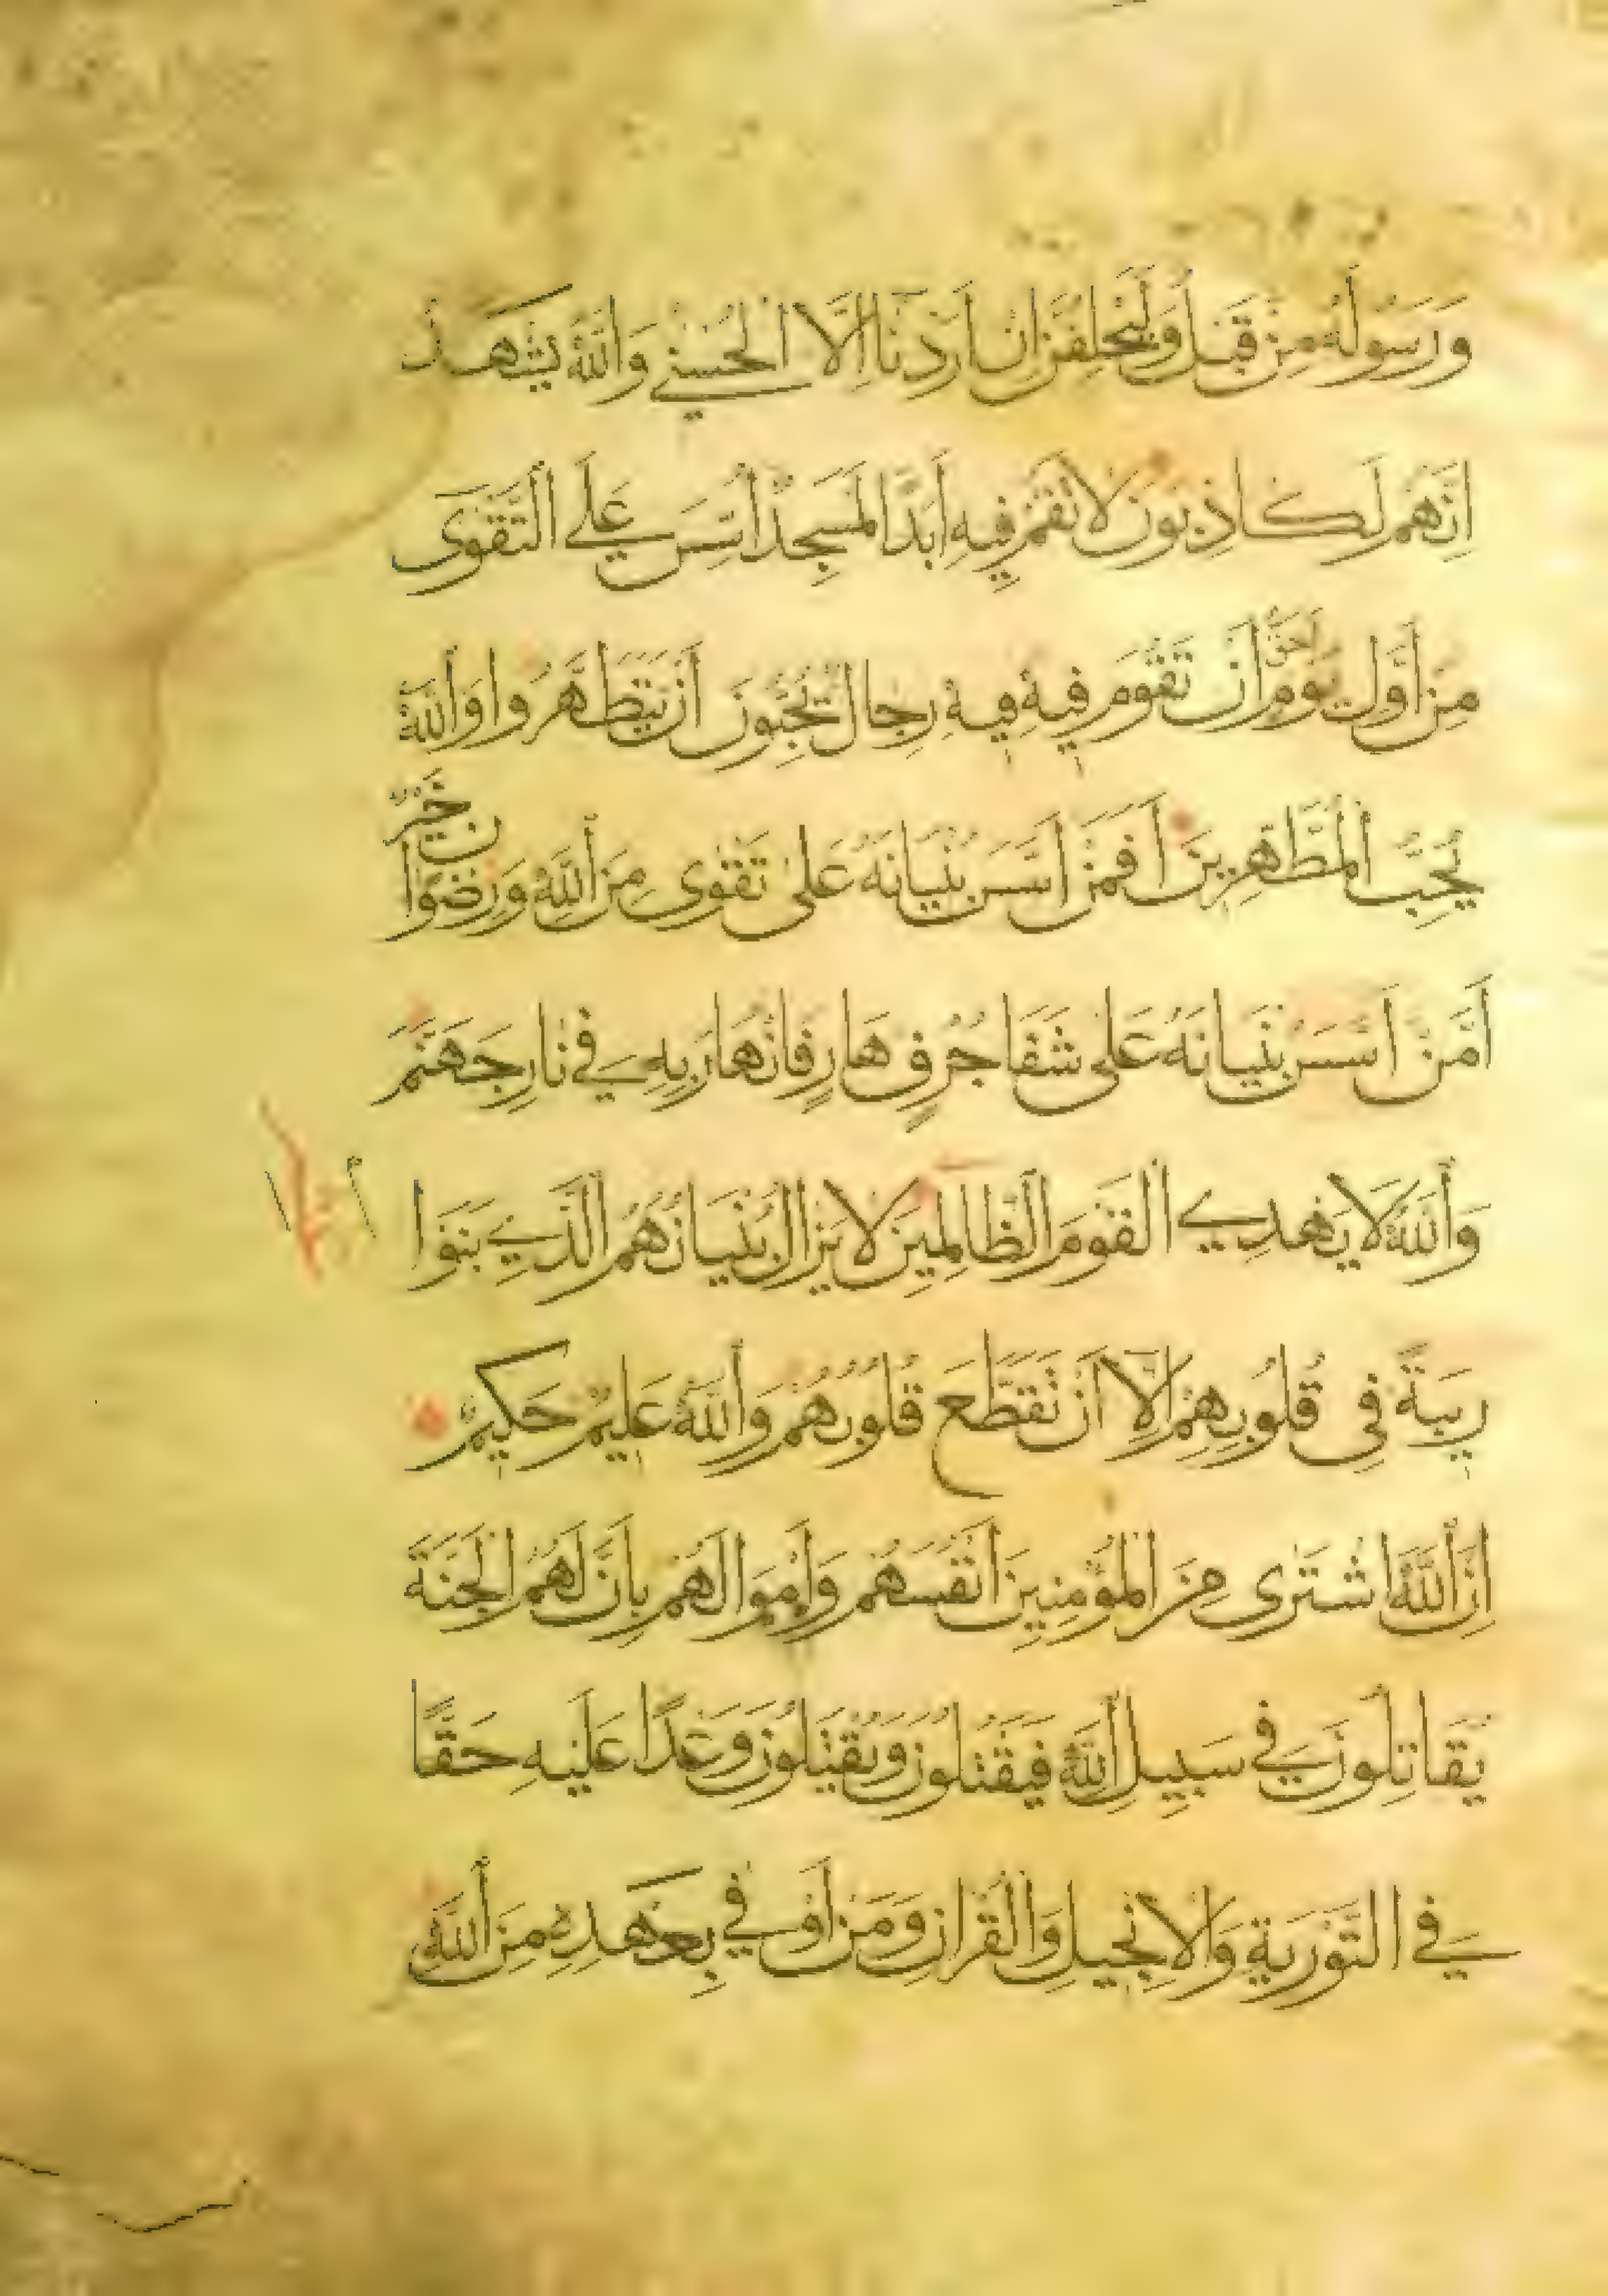 وَرَسُولَهُ مِنْ قَبْلُ وَلَيَحْلِفُنَّ اِنْ اَرَدْنَا اِلَّا الْحُسْنٰي وَاللّٰهُ يَشْهَدُ
اِنَّهُمْ لَكَاذِبُونَ لَا تَقُمْ فِيهِ اَبَدًا لَمَسْجِدٌ اُسِّسَ عَلَي التَّقْوٰى
مِنْ اَوَّلِ يَوْمٍ اَحَقُّ اَنْ تَقُوْمَ فِيهِ فِيهِ رِجَالٌ يُحِبُّوْنَ اَنْ يَتَطَهَّرُوا وَاللّٰهُ
يُحِبُّ الْمُطَّهِّرِينَ اَفَمَنْ اَسَّسَ بُنْيَانَهُ عَلٰى تَقْوٰى مِنَ اللّٰهِ وَرِضْوَانٍ خَيْرٌ
اَمْ مَنْ اَسَّسَ بُنْيَانَهُ عَلٰى شَفَا جُرُفٍ هَارٍ فَانْهَارَ بِهٖ فِي نَارِ جَهَنَّمَ
وَاللّٰهُ لَا يَهْدِي الْقَوْمَ الظَّالِمِينَ لَا يَزَالُ بُنْيَانُهُمُ الَّذِي بَنَوْا
رِيبَةً فِى قُلُوبِهِمْ اِلَّا اَنْ تَقَطَّعَ قُلُوبُهُمْ وَاللّٰهُ عَلِيمٌ حَكِيمٌ
اِنَّ اللّٰهَ اشْتَرٰى مِنَ الْمُؤْمِنِينَ اَنْفُسَهُمْ وَاَمْوَالَهُمْ بِاَنَّ لَهُمُ الْجَنَّةَ
يُقَاتِلُونَ فِي سَبِيلِ اللّٰهِ فَيَقْتُلُونَ وَيُقْتَلُونَ وَعْدًا عَلَيْهِ حَقًّا
فِي التَّوْرٰيةِ وَالْاِنْجِيلِ وَالْقُرْاٰنِ وَمَنْ اَوْفٰي بِعَهْدِهٖ مِنَ اللّٰهِ